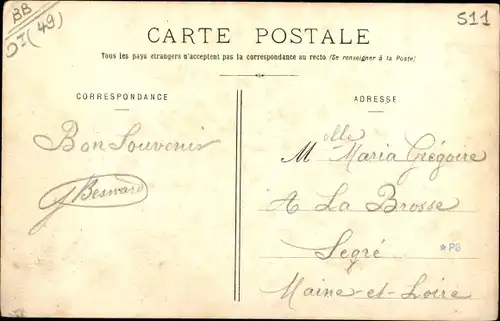 BB
(49)
S11
CARTE POSTALE
Tous les pays étrangers n'acceptent pas la correspondance au recto (Se renseigner à la Poste)
CORRESPONDANCE
ADRESSE
Bon Souvenir
Besnard
Melle Maria Grégoire
A La Brosse
Segré
*PB
Maine-et-Loire